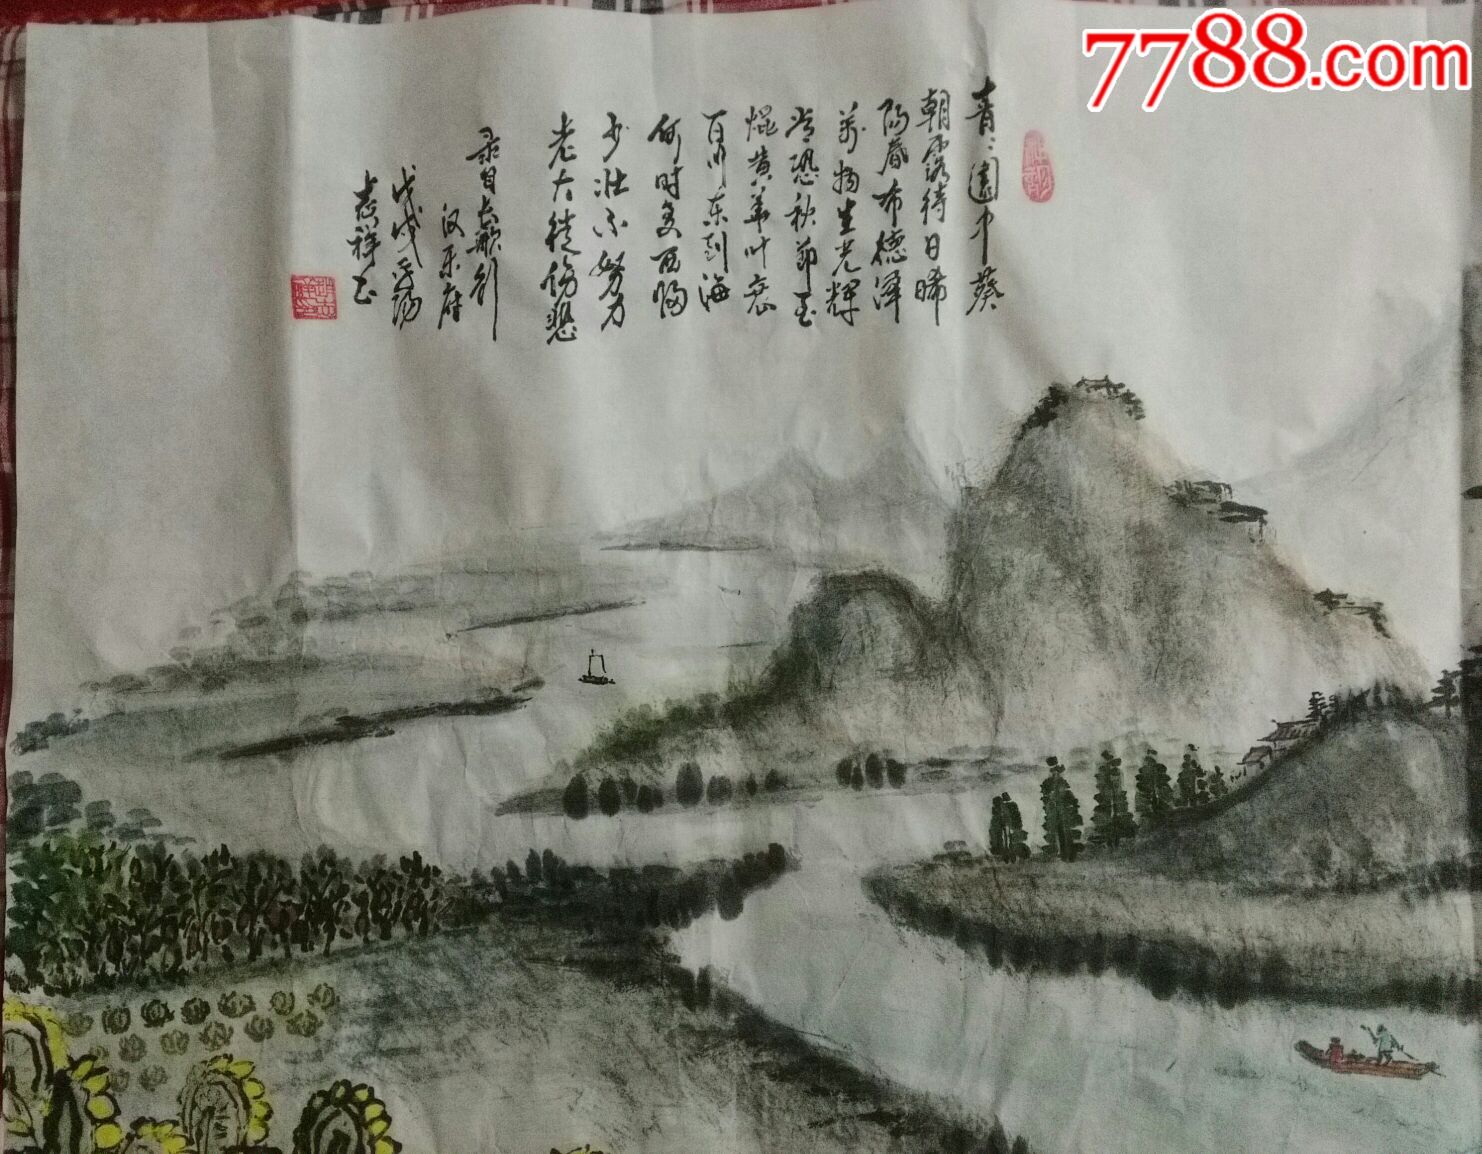 7788.com
青〻園中葵
朝露待日晞
阳春布德泽
萬物生光輝
常恐秋節至
焜黄華叶衰
百川东到海
何时复西归
少壮不努力
老大徒伤悲
录自长歌行
汉乐府
戊戌
志祥